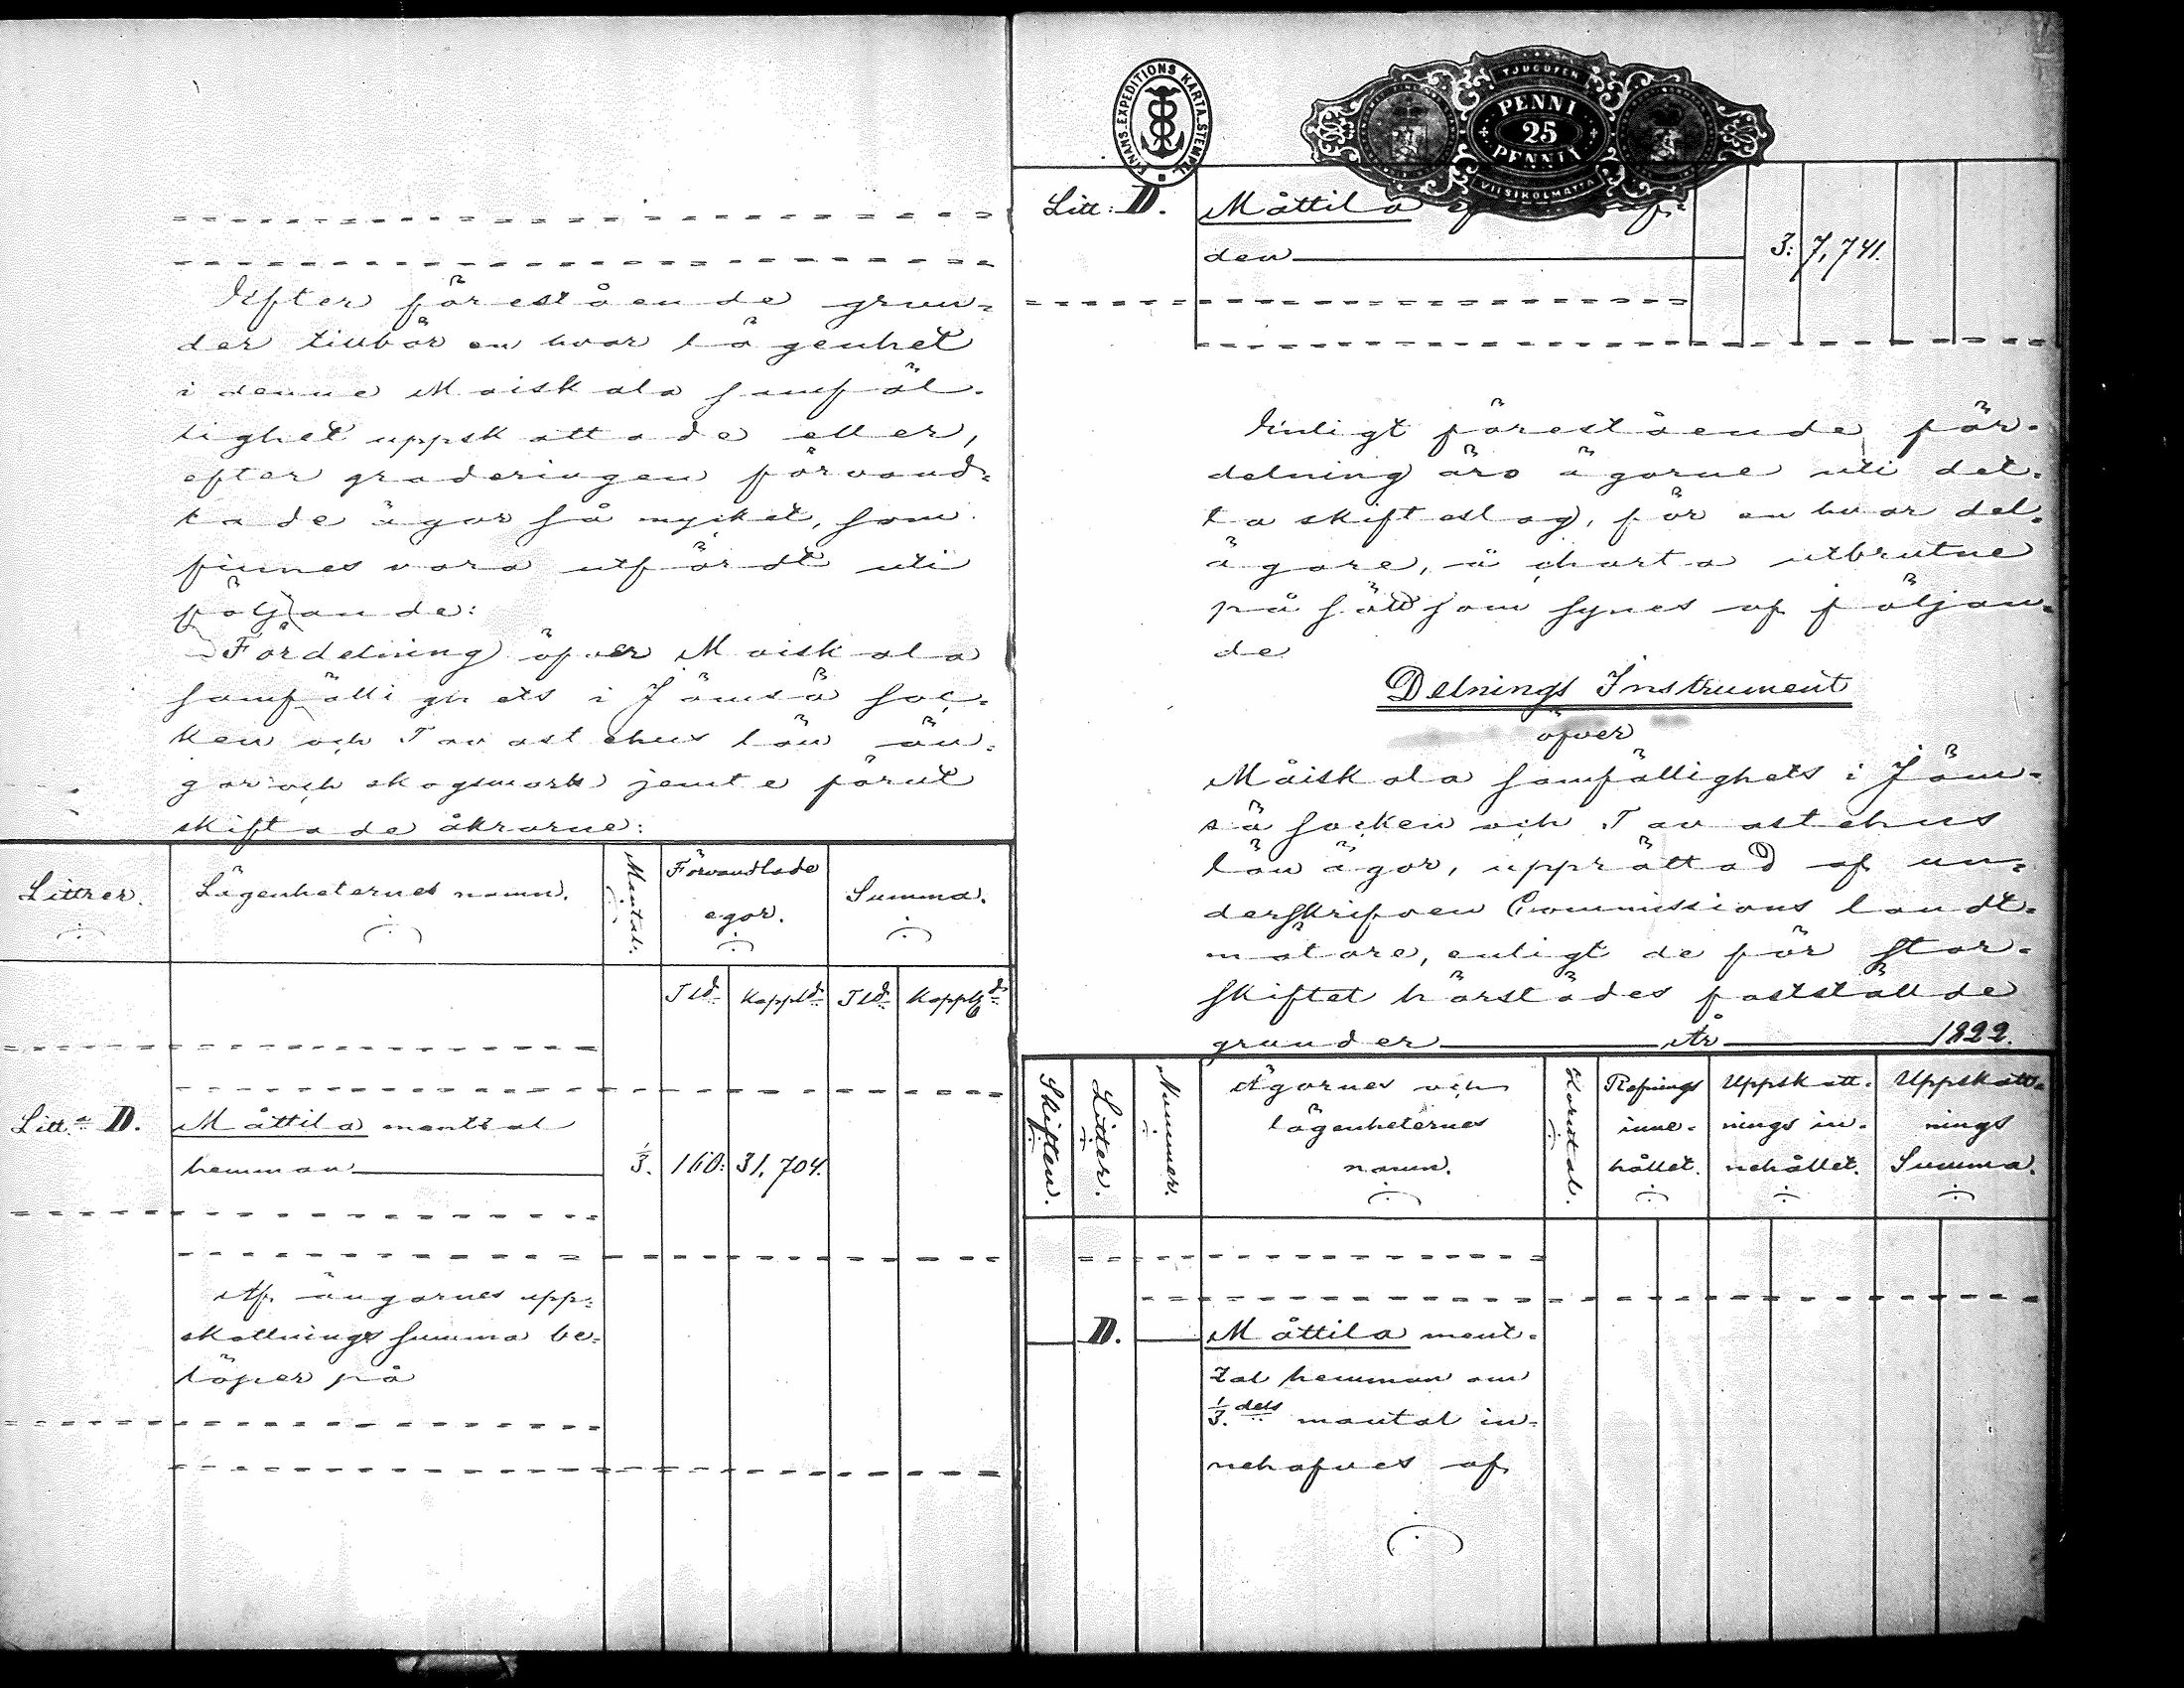 Efter förestående grun=
der tillhör en hvar lägenhet
i denne Maiskala samfäl=
lighet uppskattade eller,
efter graderingen förvand=
lade ägor så mycket, som
finnes vara utfördt uti
följande:
Fördelning öfver Maiskala
samfällighets i Jämsä soc=
ken och Tavastehus län än=
gar och skogsmark jemte förut
skiftade åkrarne:
Littrer. Lägenheternes namn. Mantal. Förvandlade egor. Summa.
Tld Kappld Tld Kappld
Litt.a D. Måttila mantal
hemman 1/3. 160: 31,704.
Af ängarnes upp=
skattnings summa be=
löper på
FINANS.EXPEDITIONS KARTA.STEMPEL
TJUGUFEM
PENNI
25
PENNIÄ
VIISIKOLMATTA
Litt: D. Måttila
den 3: 7,741.
Enligt förestående för=
delning äro ägorne uti det=
ta skifteslag, för en hvar del=
ägare, å charta utbrutne
på sätt som synes af följan=
de
Delnings Instrument
öfver
Måiskala samfällighets i Jäm=
sä socken och Tavastehus
län ägor, upprättad af un=
derskrifven Commissions landt=
mätare, enligt de för stor=
skiftet härstädes fastställde
grunder År 1822.
Skiften. Litter. Nummer. Ägornes och
lägenheternes
namn. Korntal. Refnings
inne=
hållet. Uppskatt=
nings in=
nehållet. Uppskatt=
nings
Summa.
D. Måttila mant=
tal hemman om
1/3. dels mantal in=
nehafves af